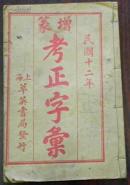 民國十二年
增篆
考正字彙
上海萃英書局發行